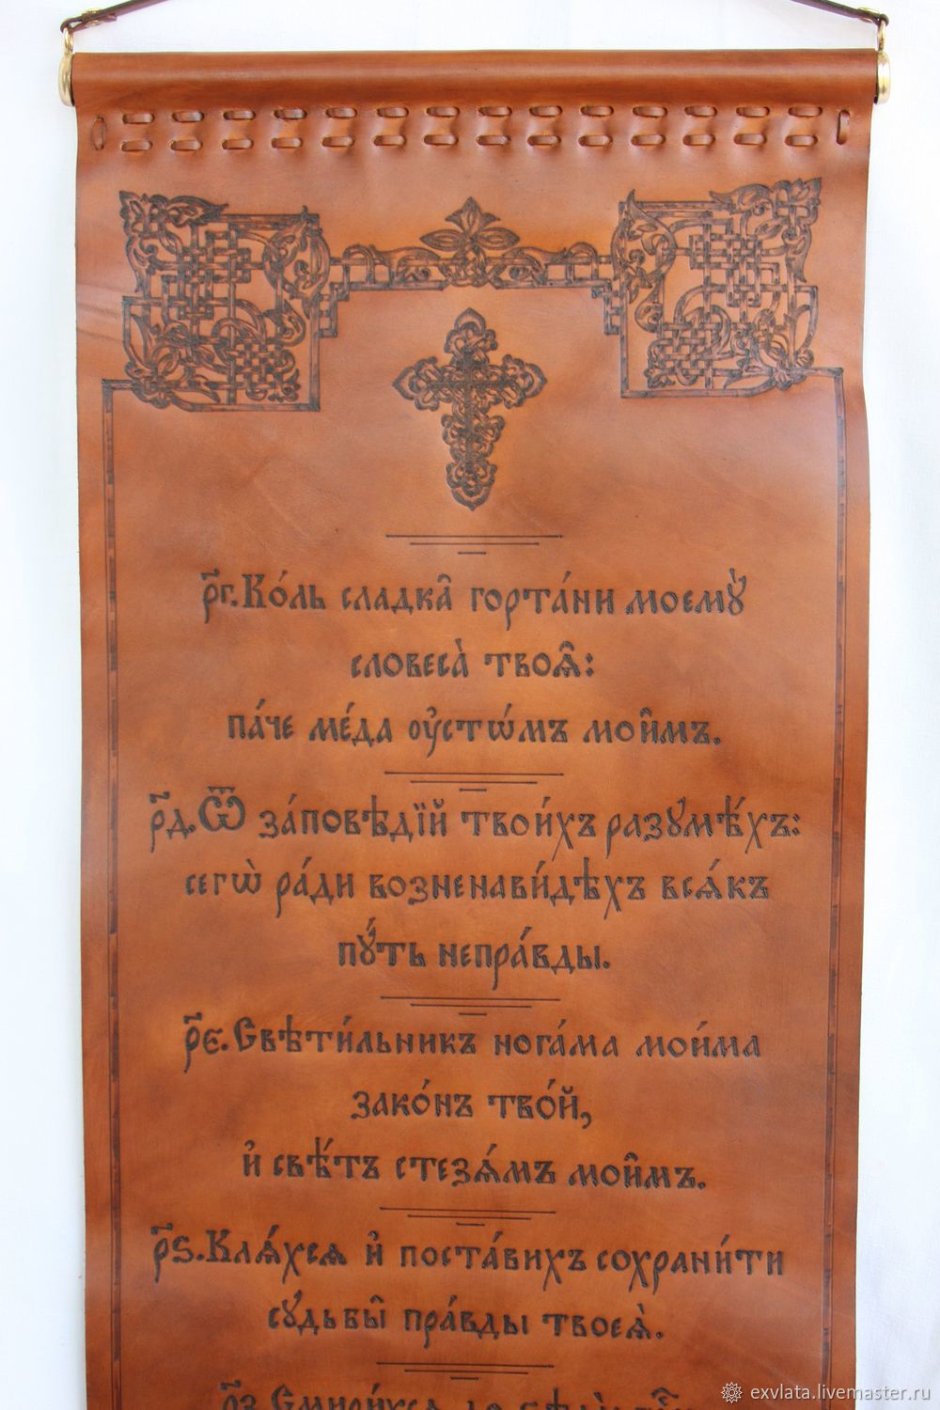 р҃г. Ко́ль сладка̑ горта́ни моемꙋ̀
словеса̀ твоѧ̑:
па́че ме́да ᲂу҆стѡ́мъ мои̑мъ.
р҃д. Ѿ за́повѣдїй твои́хъ разꙋмѣ́хъ:
сегѡ̀ ра́ди возненави́дѣхъ всѧ́къ
пꙋ́ть непра́вды.
р҃є. Свѣти́льникъ нога́ма мои́ма
зако́нъ тво́й,
и҆ свѣ́тъ стезѧ́мъ мои̑мъ.
р҃ѕ. Клѧ́хсѧ и҆ поста́вихъ сохрани́ти
сꙋдьбы̑ пра́вды твоеѧ̀.
р҃з. Смири́хсѧ до
exvlata.livemaster.ru